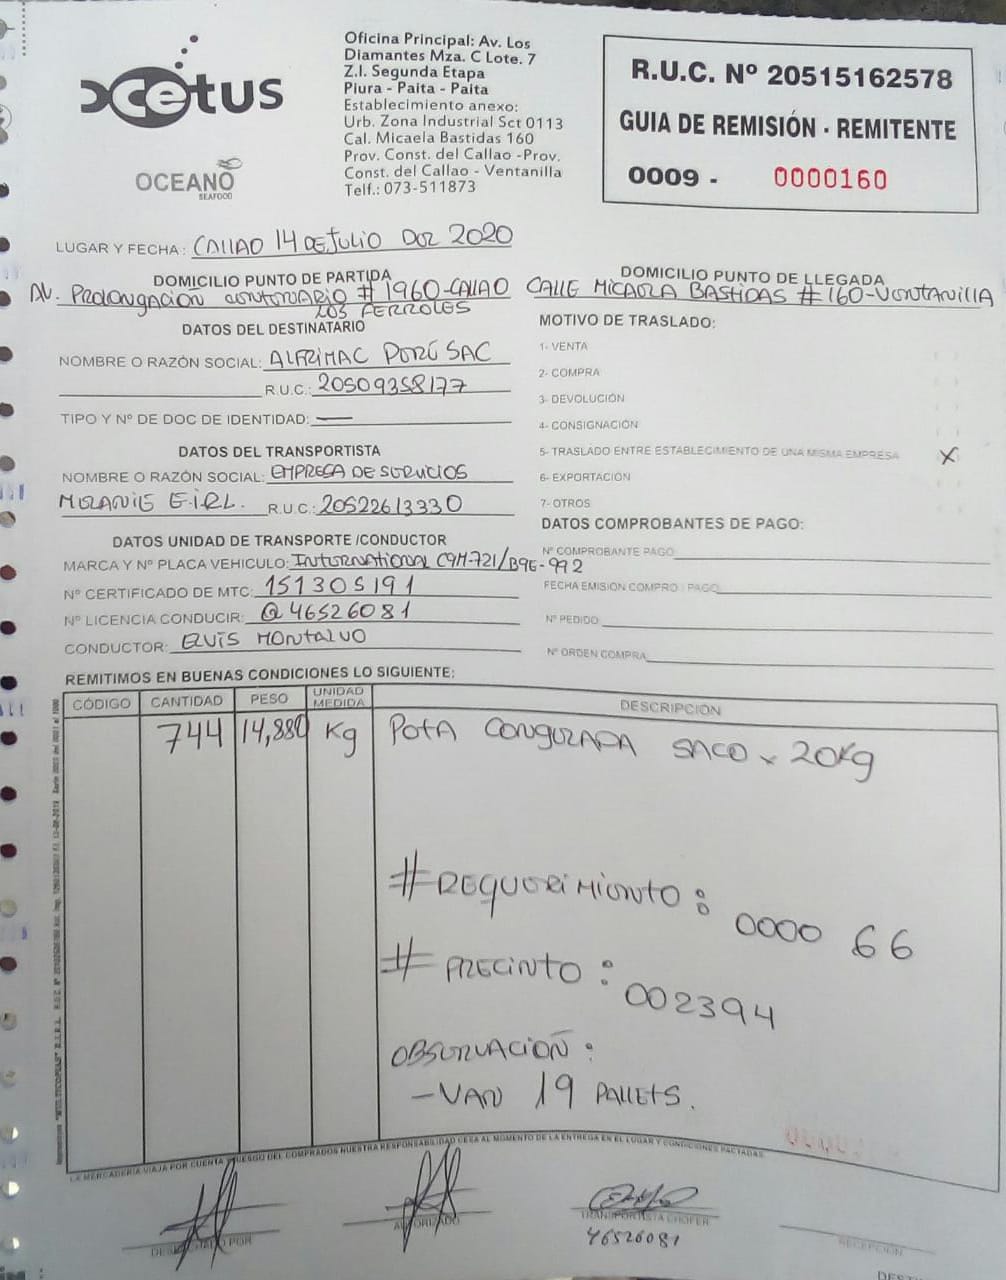 Cetus
OCEANO
SEAFOOD
Oficina Principal: Av. Los
Diamantes Mza. C Lote. 7
Z.I. Segunda Etapa
Piura - Paita - Paita
Establecimiento anexo:
Urb. Zona Industrial Sct 0113
Cal. Micaela Bastidas 160
Prov. Const. del Callao -Prov.
Const. del Callao - Ventanilla
Telf.: 073-511873
R.U.C. Nº 20515162578
GUIA DE REMISIÓN - REMITENTE
0009 - 0000160
LUGAR Y FECHA: CALLAO 14 DE JULIO DEL 2020
DOMICILIO PUNTO DE PARTIDA
AV. Prolongación centenario # 1960-CALLAO
LOS FERROLES
DOMICILIO PUNTO DE LLEGADA
CALLE MICAELA BASTIDAS # 160-Ventanilla
DATOS DEL DESTINATARIO
NOMBRE O RAZÓN SOCIAL: ALFRIMAC PERÚ SAC
R.U.C.: 20509358177
TIPO Y Nº DE DOC DE IDENTIDAD: —
DATOS DEL TRANSPORTISTA
NOMBRE O RAZÓN SOCIAL: EMPRESA DE SERVICIOS
MELANIE E.I.R.L. R.U.C.: 20522613330
DATOS UNIDAD DE TRANSPORTE /CONDUCTOR
MARCA Y Nº PLACA VEHICULO: International C9M-721/B9E-992
Nº CERTIFICADO DE MTC: 151305191
Nº LICENCIA CONDUCIR: Q46526081
CONDUCTOR: ELVIS MONTALVO
MOTIVO DE TRASLADO:
1- VENTA
2- COMPRA
3- DEVOLUCIÓN
4- CONSIGNACIÓN
5- TRASLADO ENTRE ESTABLECIMIENTO DE UNA MISMA EMPRESA X
6- EXPORTACIÓN
7- OTROS
DATOS COMPROBANTES DE PAGO:
Nº COMPROBANTE PAGO
FECHA EMISIÓN COMPRO. PAGO
Nº PEDIDO
Nº ORDEN COMPRA
REMITIMOS EN BUENAS CONDICIONES LO SIGUIENTE:
CÓDIGO CANTIDAD PESO UNIDAD MEDIDA DESCRIPCIÓN
744 14,880 Kg POTA CONGELADA SACO x 20Kg
# REQUERIMIENTO: 0000 66
# PRECINTO: 002394
OBSERVACIÓN:
- VAN 19 PALLETS.
LA MERCADERIA VIAJA POR CUENTA Y RIESGO DEL COMPRADOS NUESTRA RESPONSABILIDAD CESA AL MOMENTO DE LA ENTREGA EN EL LUGAR Y CONDICIONES PACTADAS
DESPACHADO POR
AUTORIZADO
TRANSPORTISTA CHOFER
46526081
RECEPCIÓN